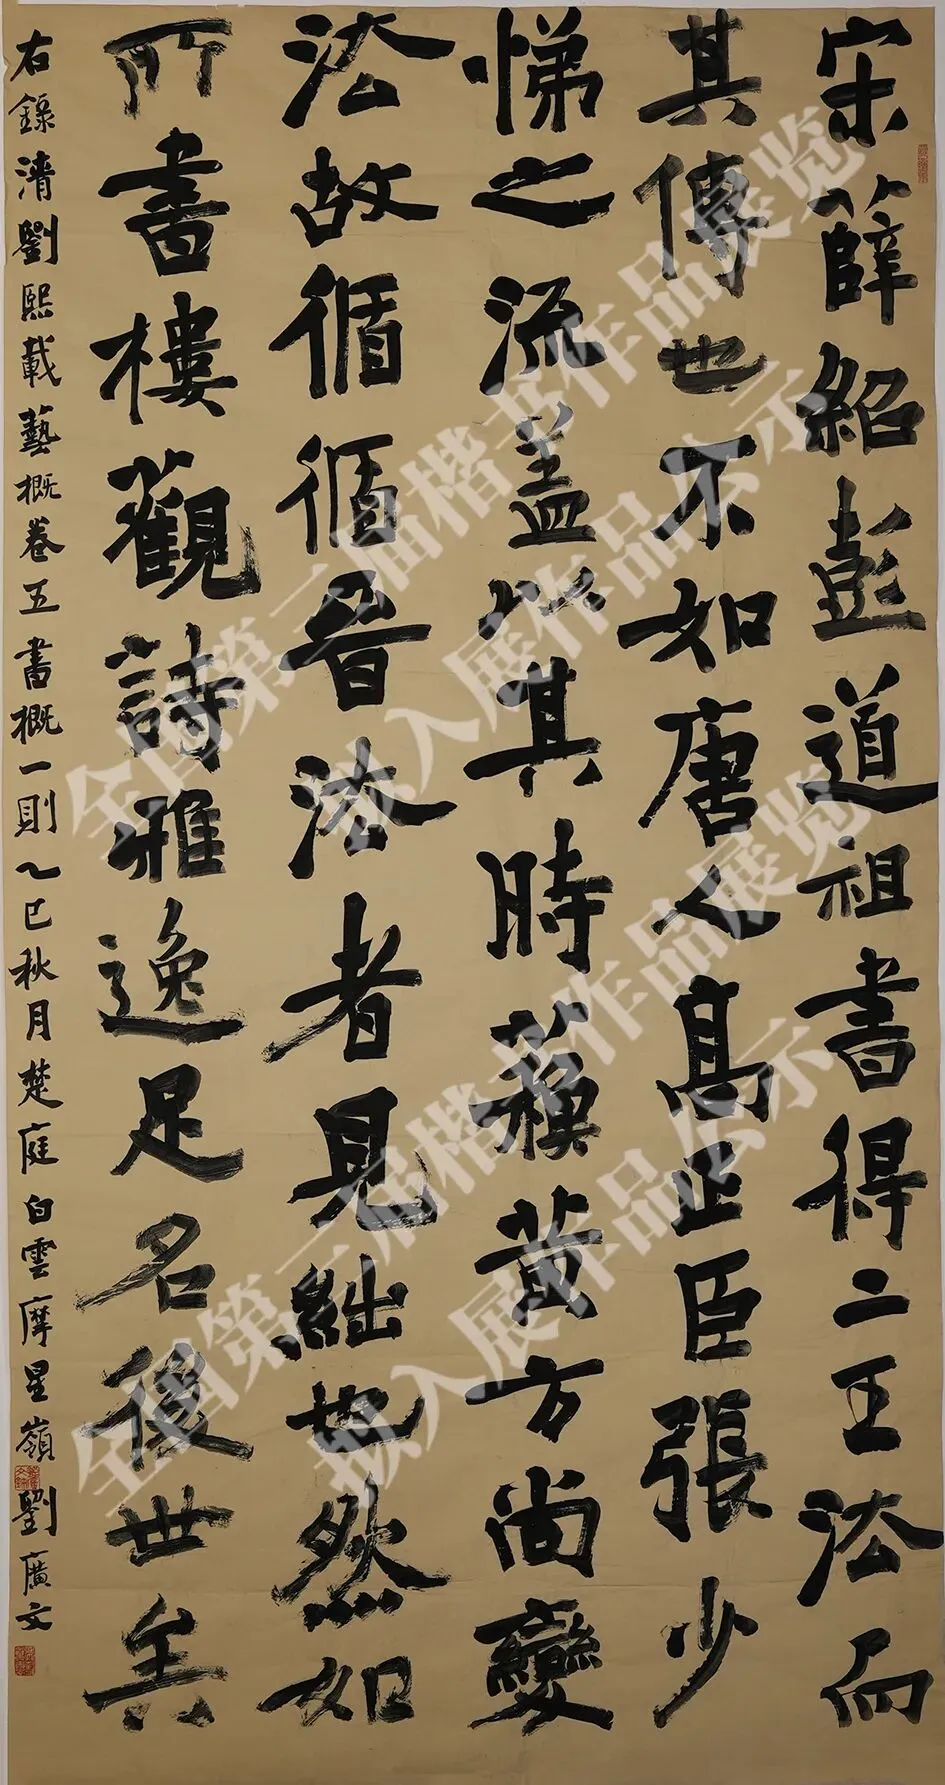 宋薛紹彭道祖書得二王法而
其傳也不如唐人高正臣張少
悌之流蓋以其時蘇黃方尚變
法故循循晉法者見絀也然如
所書樓觀詩雅逸足名後世矣
右錄清劉熙載藝概卷五書概一則乙巳秋月楚庭白雲摩星嶺劉廣文
全国第三届楷书作品展览
拟入展作品公示
全国第三届楷书作品展览
拟入展作品公示